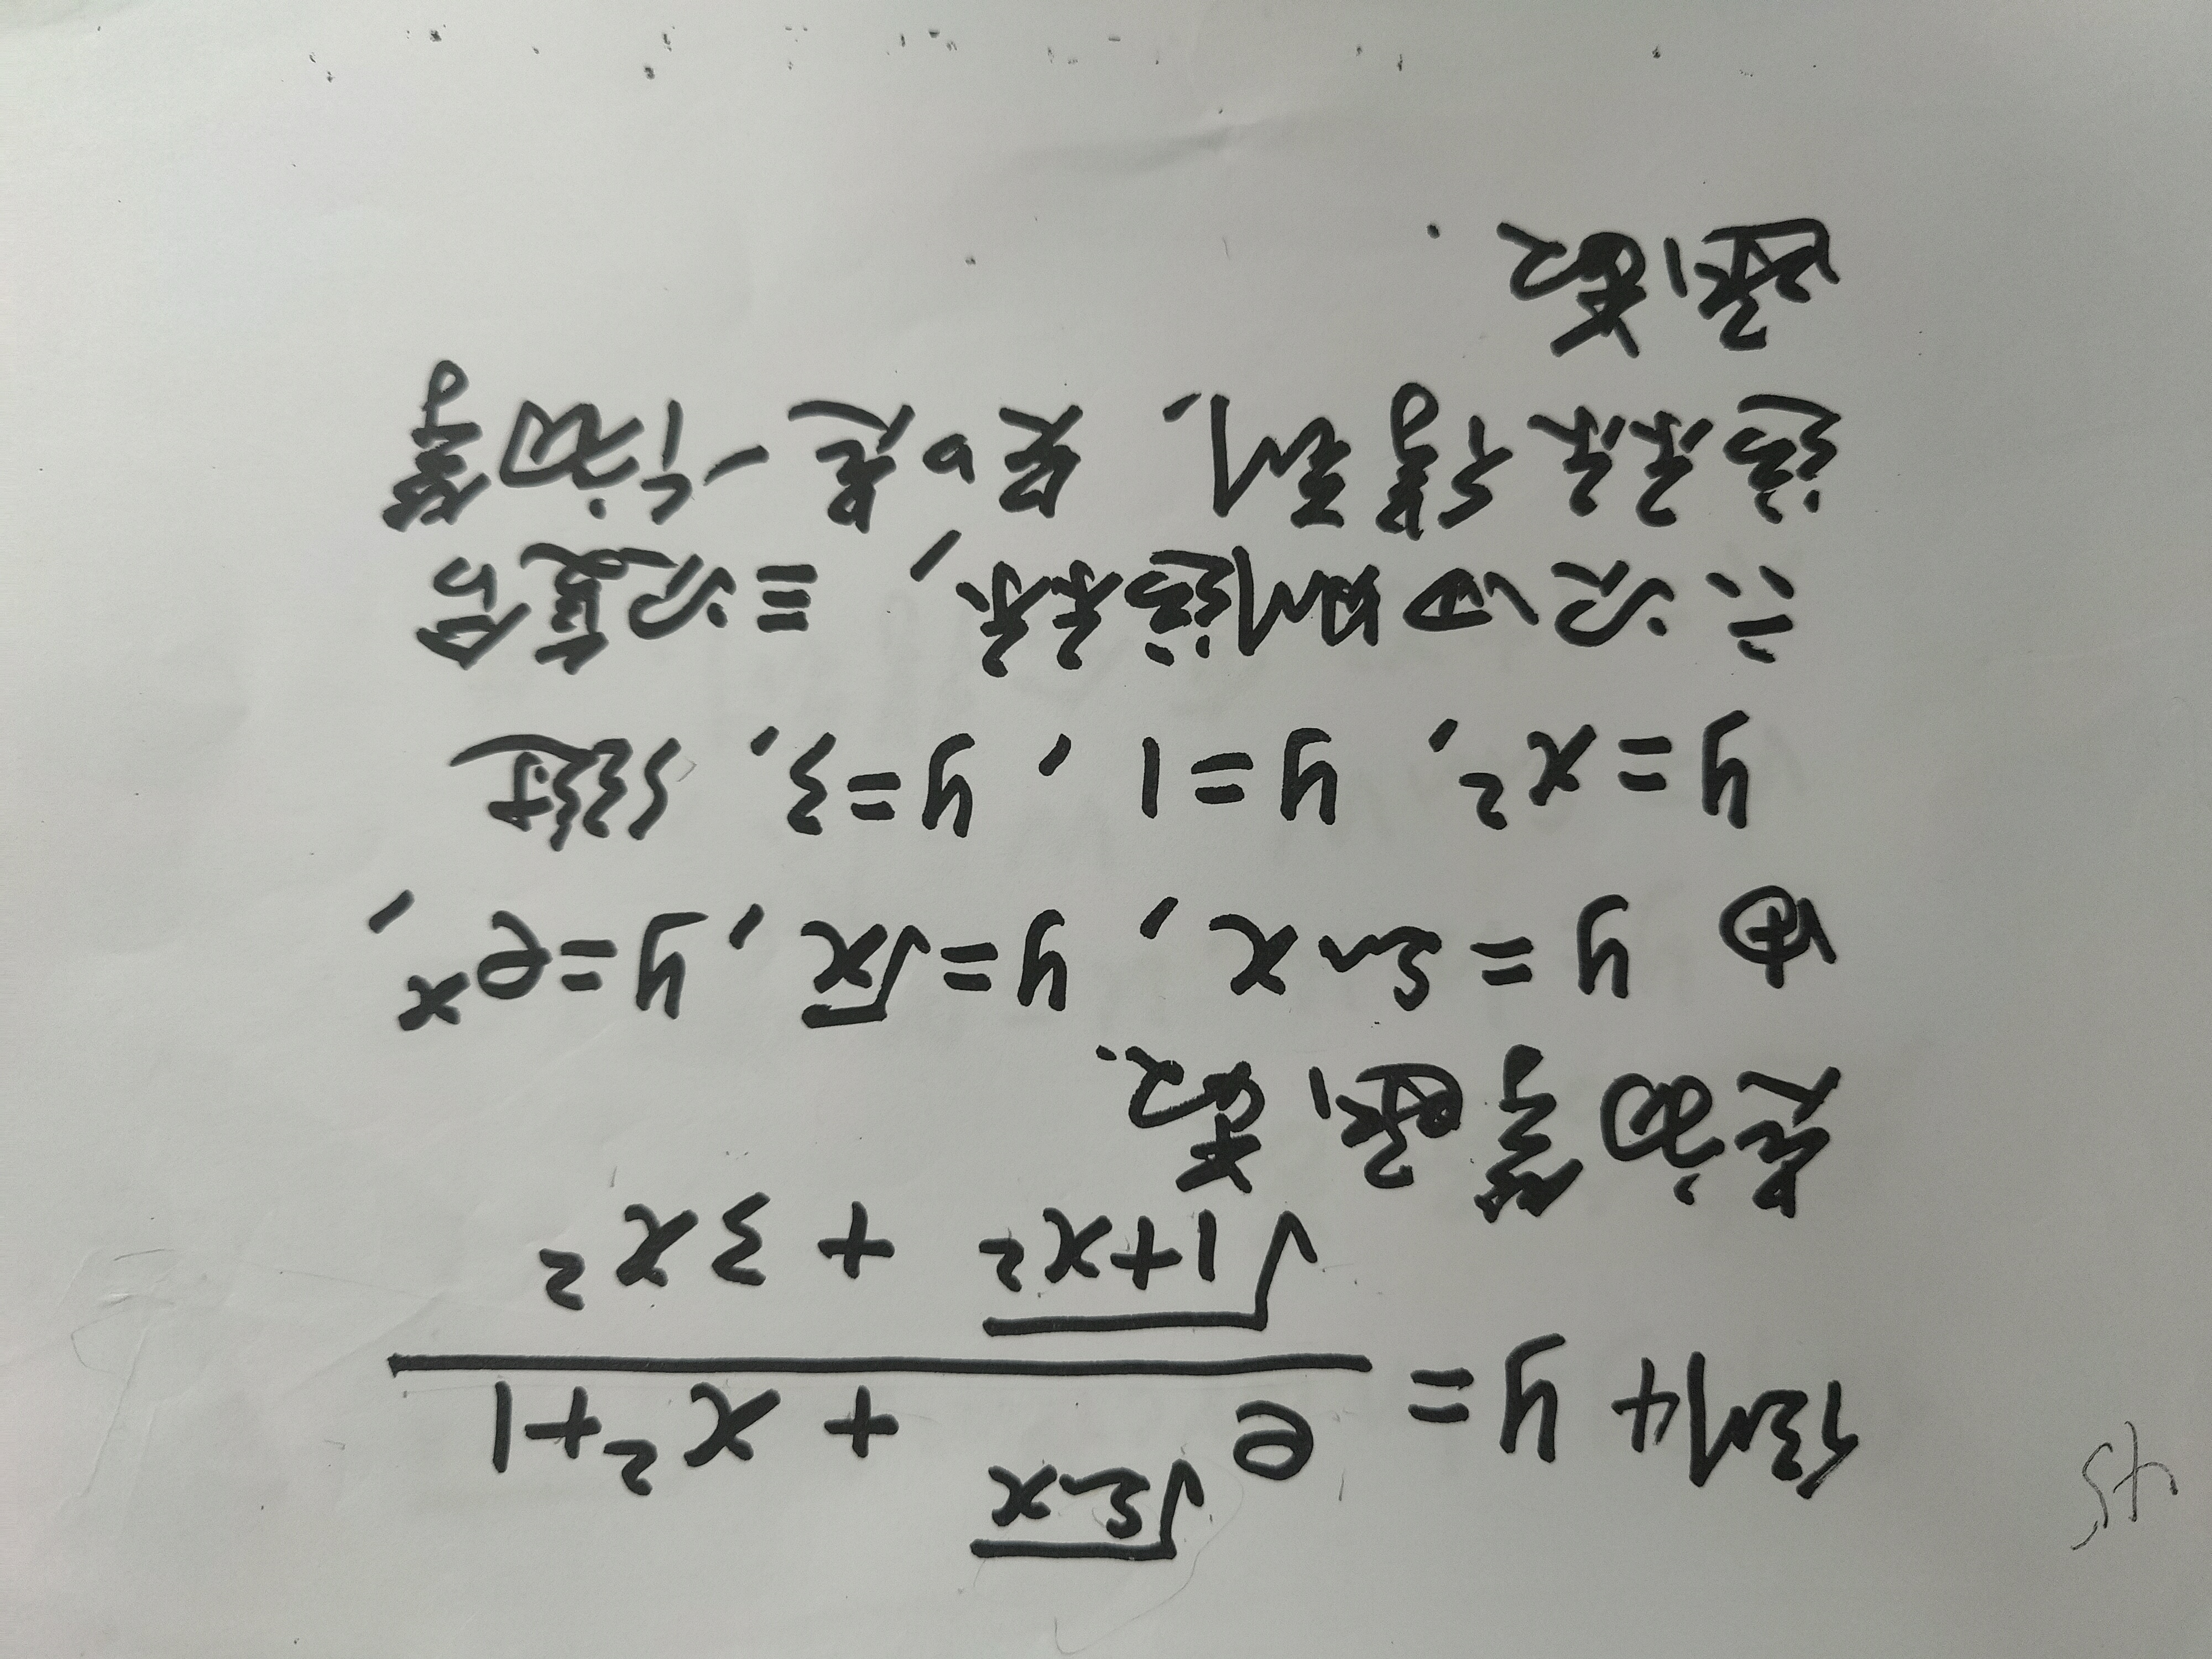 45
例4 y = \frac{e^{\sqrt{sinx}} + x²+1}{\sqrt{1+x²} + 3x²}
是初等函数.
由 y=sinx, y=√x, y=e^x,
y=x², y=1, y=3, 经过
六次四则运祘, 三次复合
运祘得到. 是一个初等
函数.